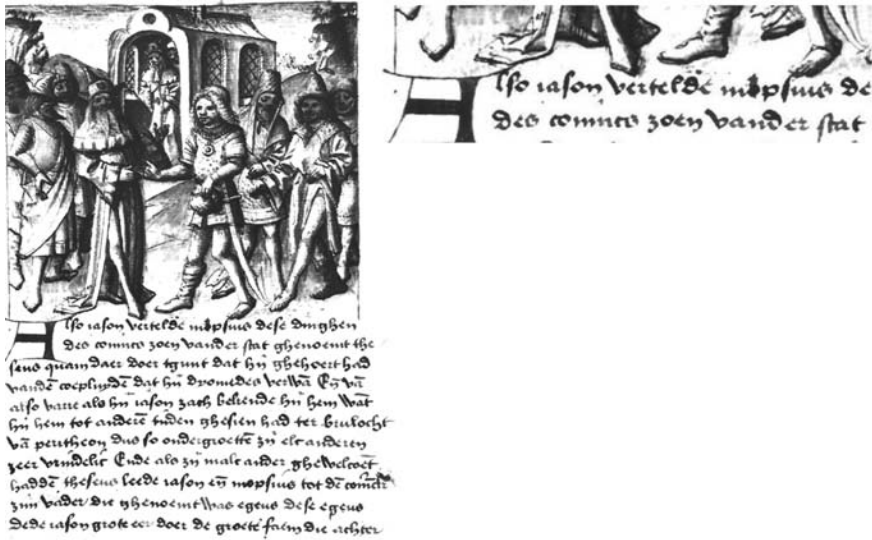 Also iason vertelde mopsius dese dinghen
des conincs zoen vander stat ghenoemt the
seus quam daer doer tgunt dat hij ghehoert had
vandē coepludē dat hij dyomedes verwā Eñ vā
also varre als hij iason zach kekende hij hem wāt
hij hem tot anderē tijden ghesien had ter brulocht
vā peritheon dus so ondergroettē zij elc anderen
zeer vrindelic Ende als zij malcander ghewelcoēt
haddē theseus leede iason eñ mopsius tot dē
zijn vader die ghenoemt was egeus dese egeus
dede iason grote eer doer de groete faem die achter
Also iason vertelde mopsius de
des conincs zoen vander stat